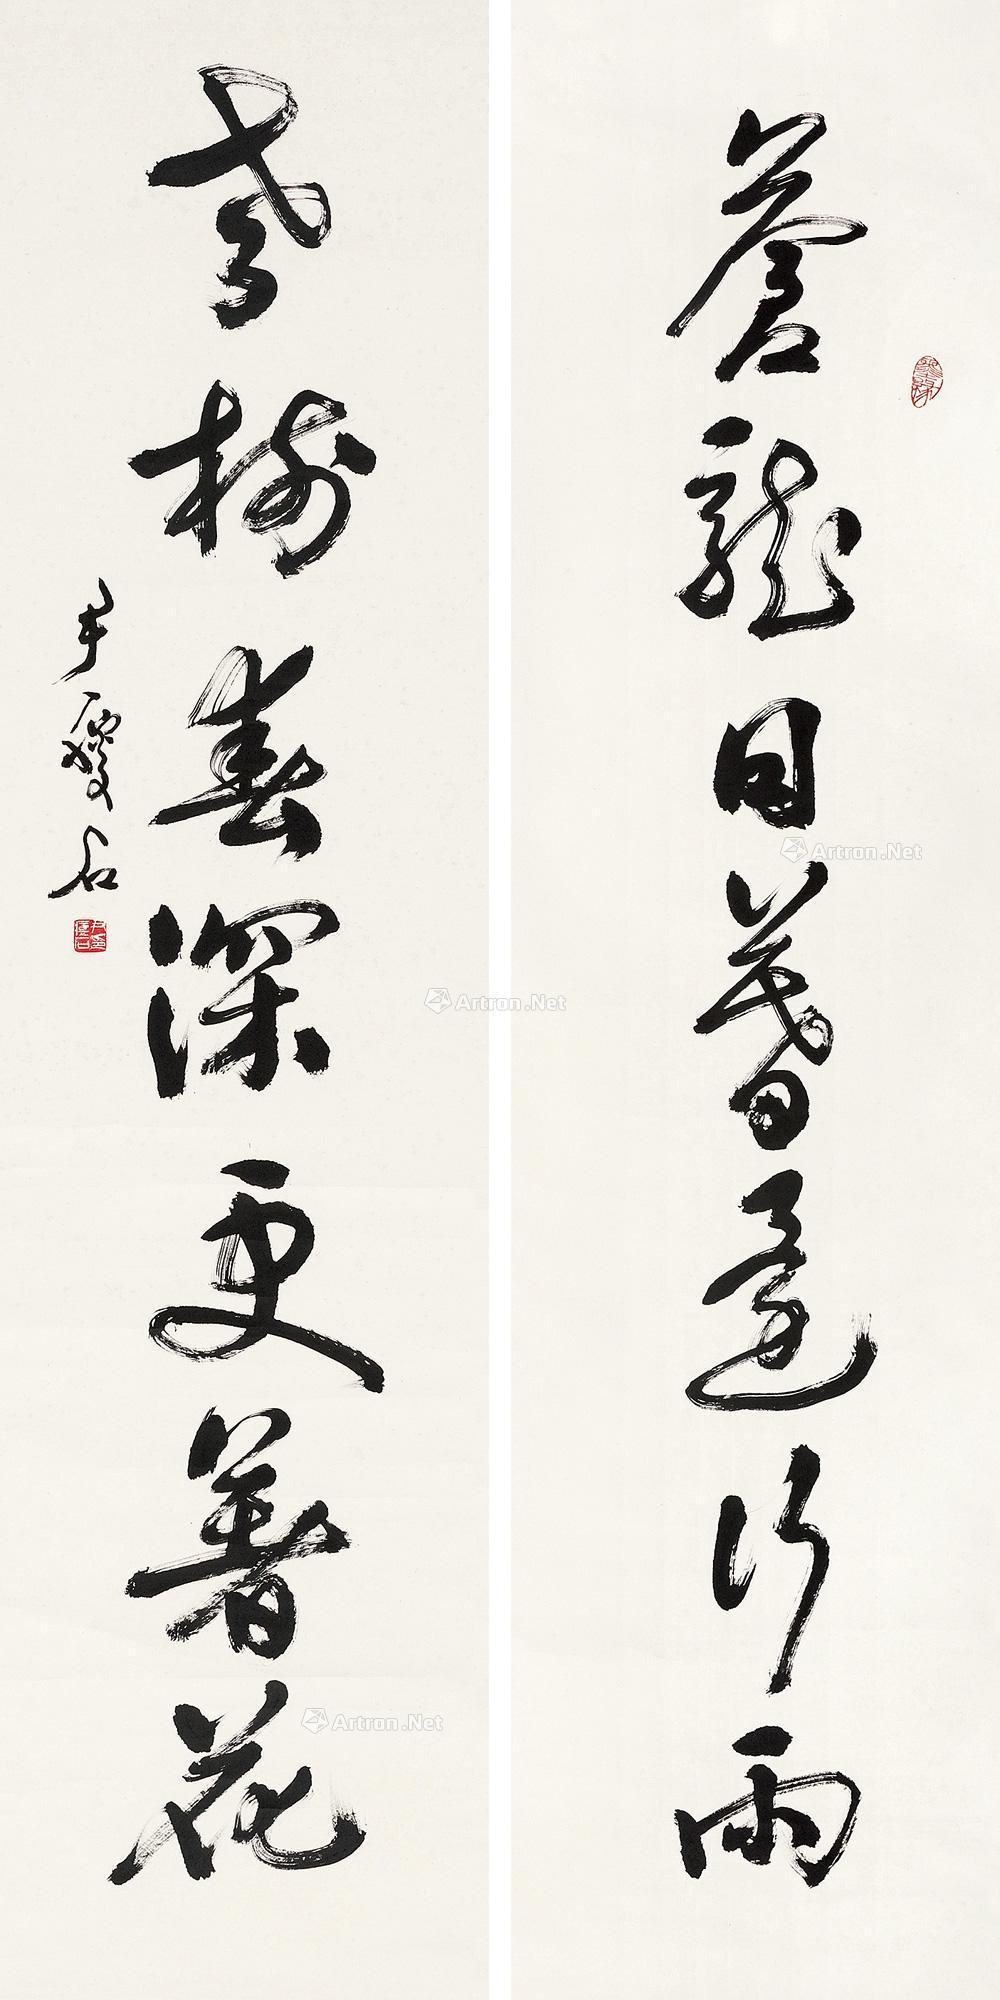 苍龙日暮还行雨
老树春深更著花
尹瘦石
尹瘦石
Artron.Net
Artron.Net
Artron.Net